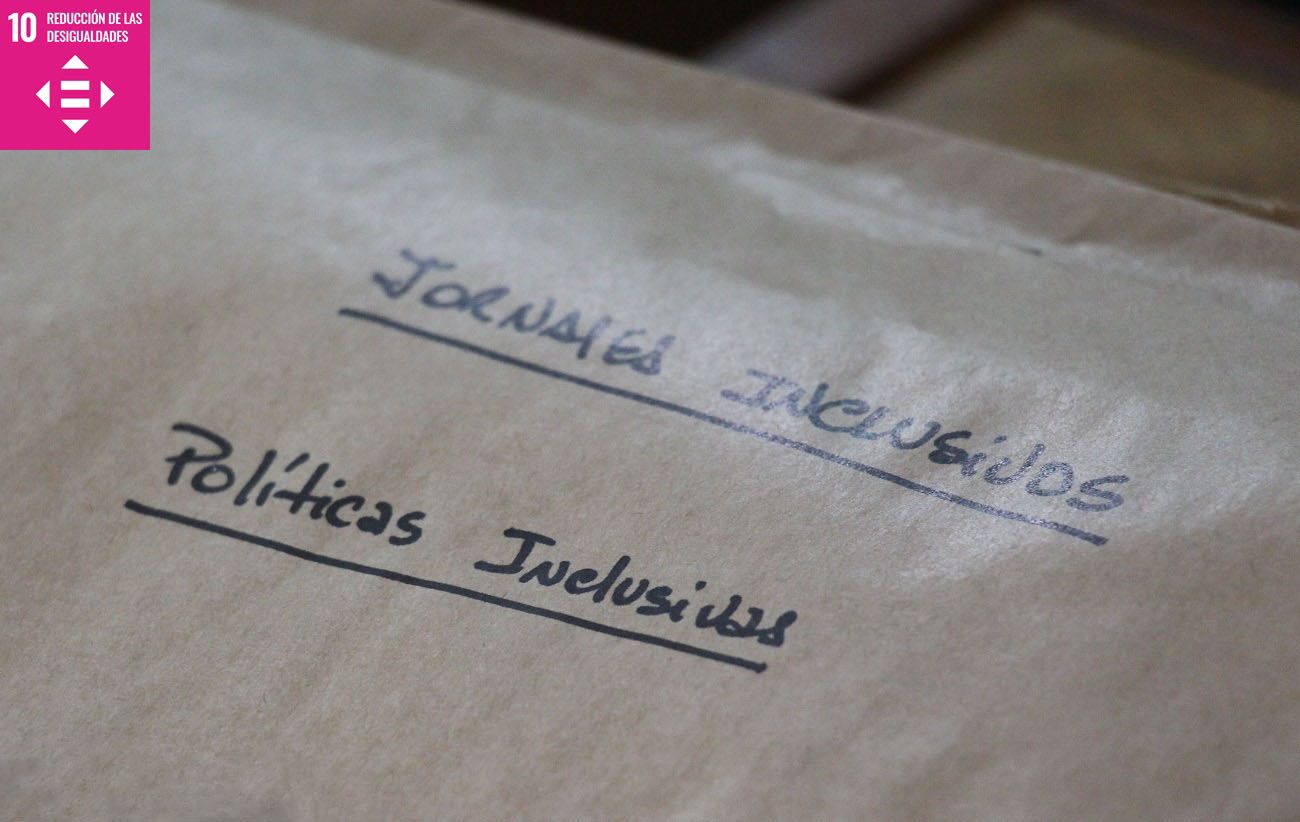 10 REDUCCIÓN DE LAS
DESIGUALDADES
JORNALES INCLUSIVOS
Políticas Inclusivas